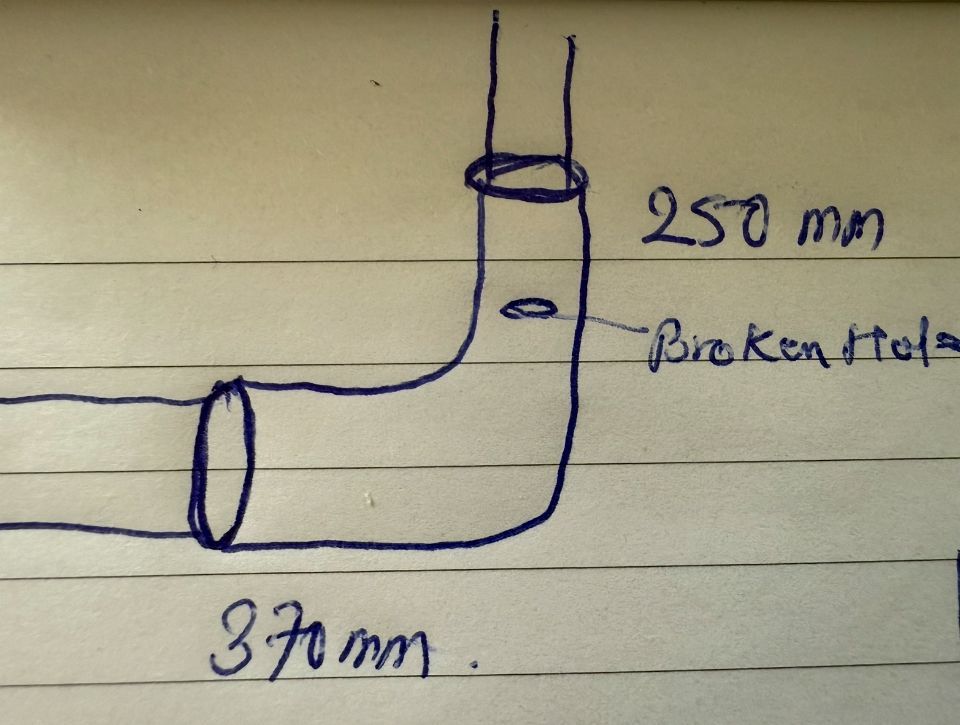 250 mm
Broken Hole
370mm.